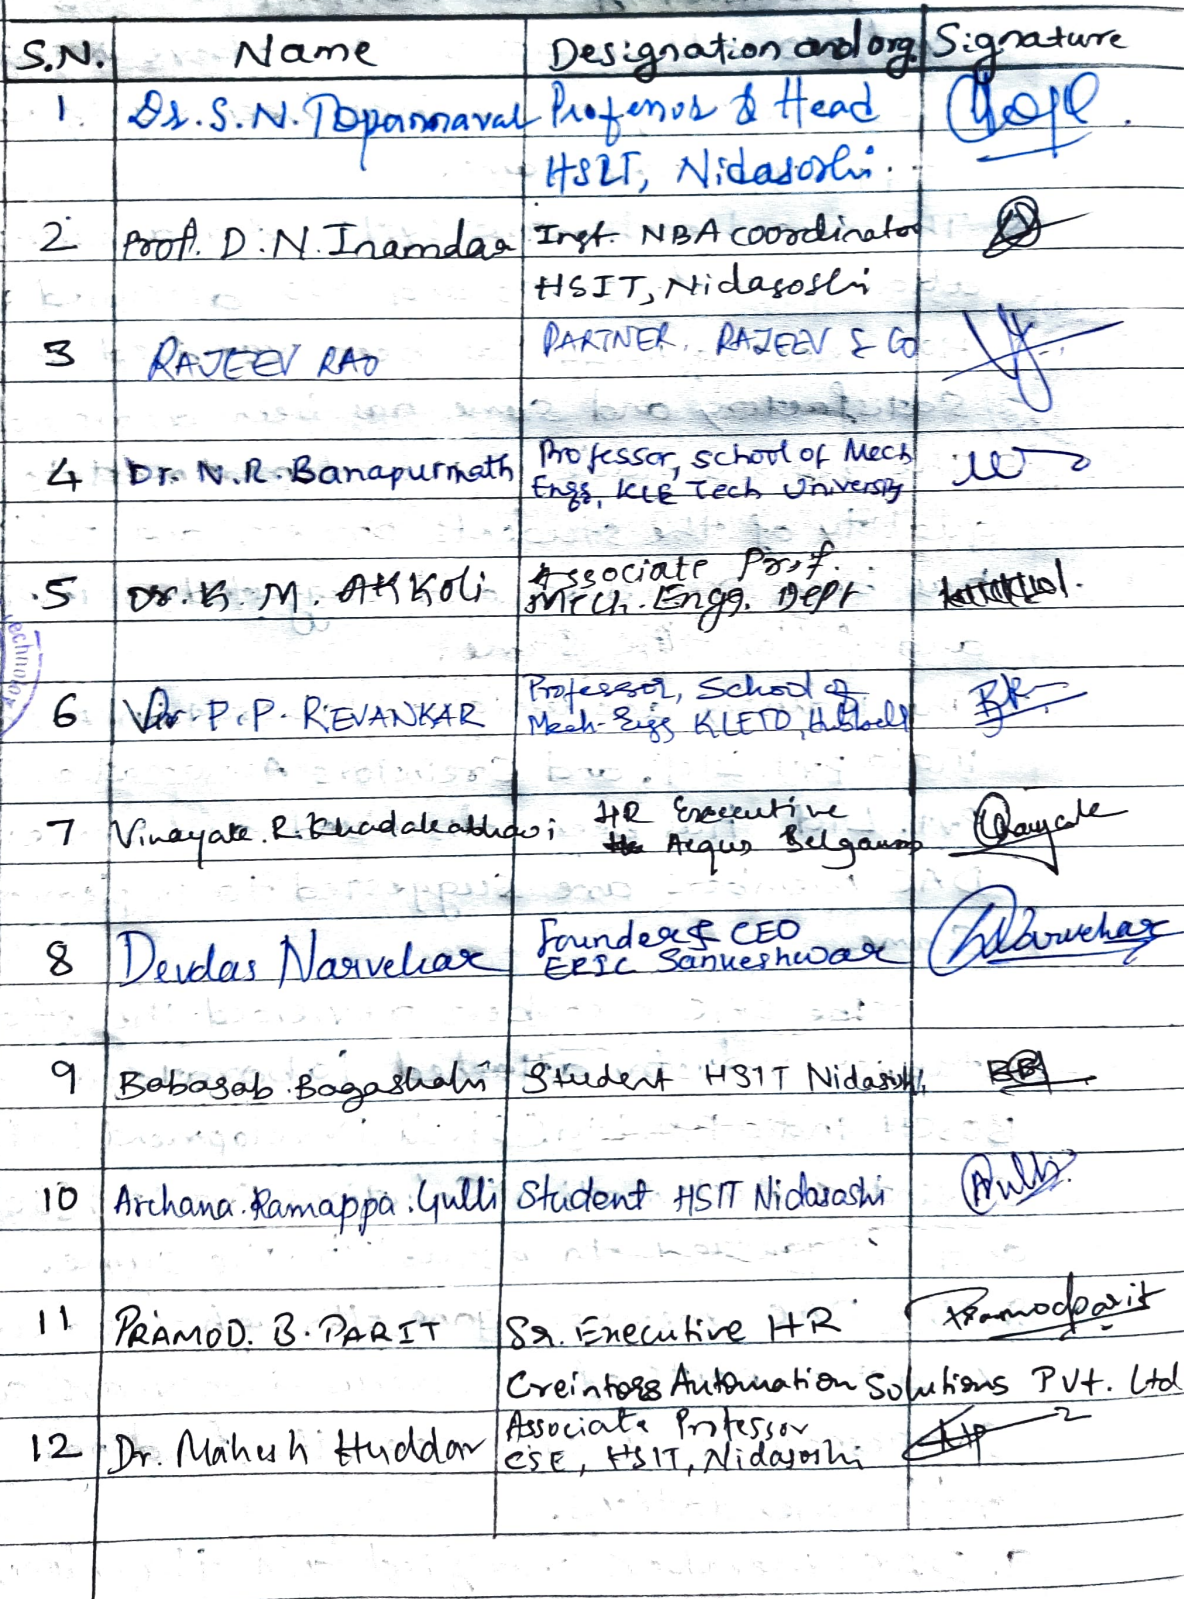 S.N. Name Designation and org Signature
1 Dr. S. N. Topannavar Professor & Head
HSIT, Nidasoshi.
2 Prof. D. N. Inamdar Inst. NBA coordinator
HSIT, Nidasoshi
3 RAJEEV RAO PARTNER, RAJEEV & Co
4 Dr. N. R. Banapurmath Professor, school of Mech
Engg, KLE Tech University
5 Dr. K. M. AKKOLI Associate Prof.
Mech. Engg. Dept
6 P. P. REVANKAR Professor, School of
Mech. Engg KLETU, Hubballi
7 Vinayak. R. Khadakabhavi HR Executive
Aequs Belgaum
8 Devdas Narvekar Founder & CEO
EPIC Sankeshwar Narvekar
9 Babasab. Bagashahi Student HSIT Nidasoshi
10 Archana. Ramappa. Gulli Student HSIT Nidasoshi
11 PRAMOD. B. PARIT Sr. Executive HR Pramodparit
Creintors Automation Solutions Pvt. Ltd
12 Dr. Mahesh Huddar Associate Professor
CSE, HSIT, Nidasoshi